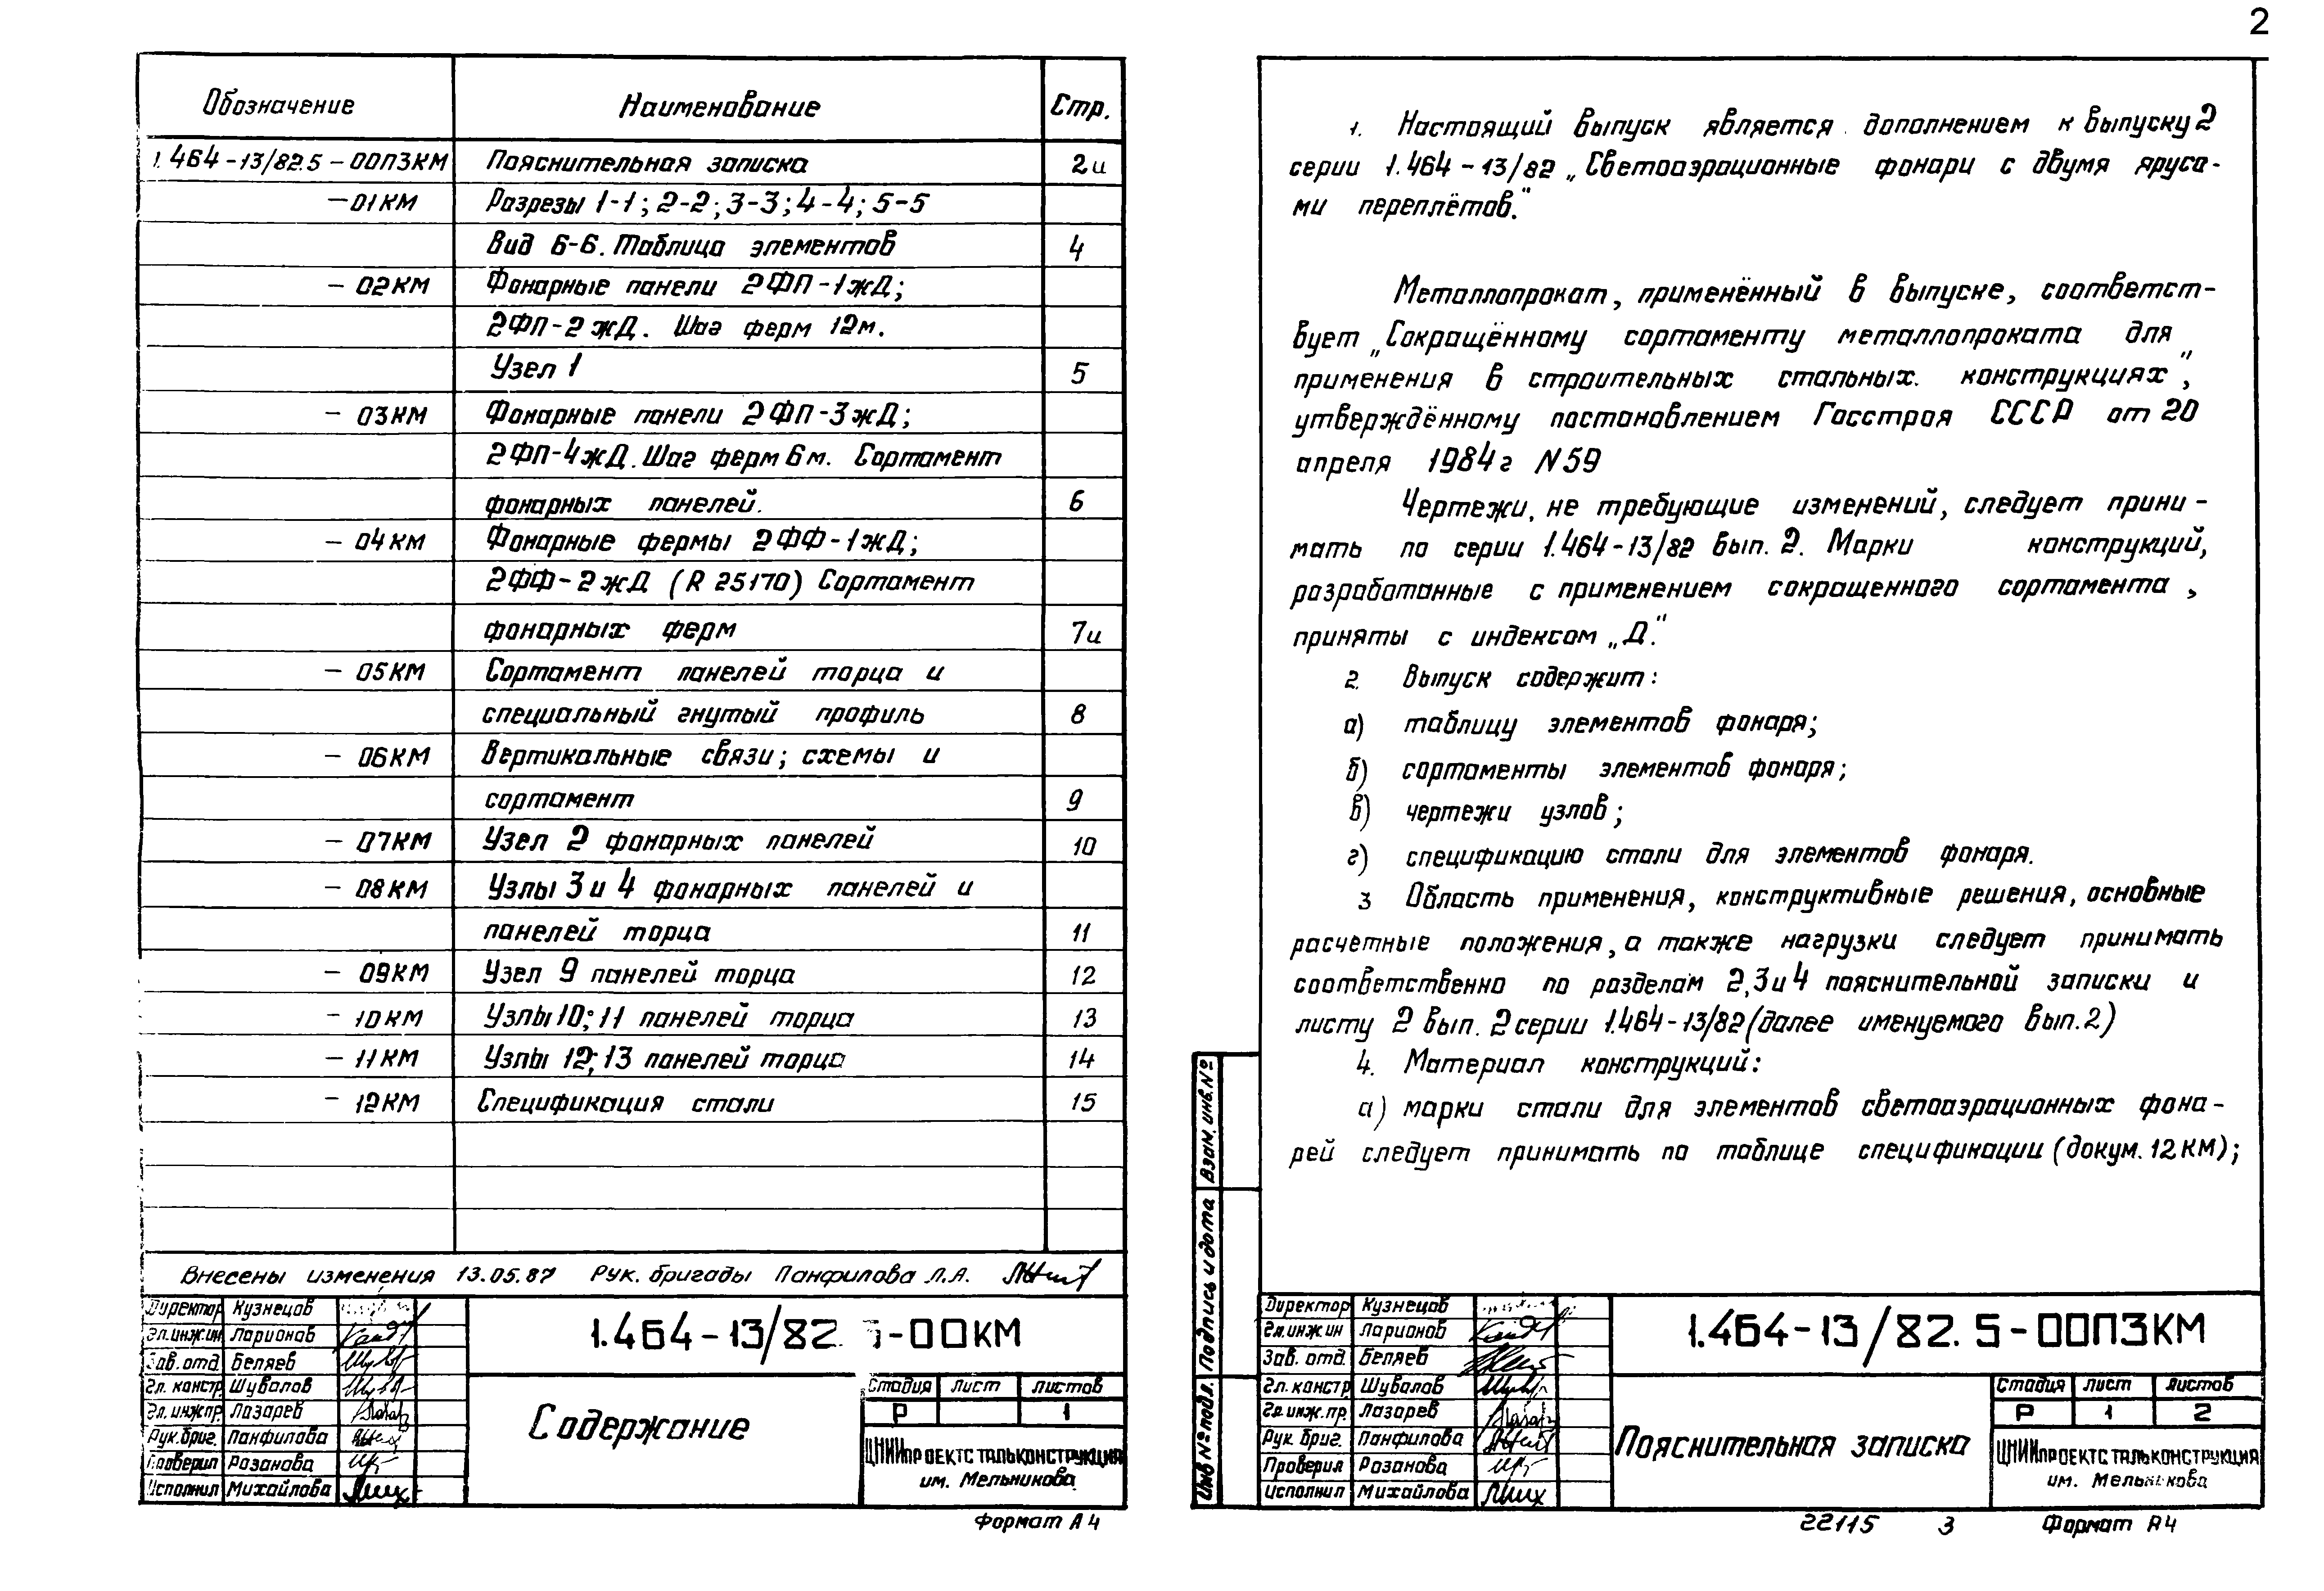 2
Обозначение Наименование Стр.
1.464-13/82.5-00ПЗКМ Пояснительная записка 2и
-01КМ Разрезы 1-1; 2-2; 3-3; 4-4; 5-5
Вид 6-6. Таблица элементов 4
- 02КМ Фонарные панели 2ФП-1жД;
2ФП-2жД. Шаг ферм 12м.
Узел 1 5
- 03КМ Фонарные панели 2ФП-3жД;
2ФП-4жД. Шаг ферм 6м. Сортамент
фонарных панелей. 6
- 04КМ Фонарные фермы 2ФФ-1жД;
2ФФ-2жД (R 25170) Сортамент
фонарных ферм 7и
- 05КМ Сортамент панелей торца и
специальный гнутый профиль 8
- 06КМ Вертикальные связи; схемы и
сортамент 9
- 07КМ Узел 2 фонарных панелей 10
- 08КМ Узлы 3 и 4 фонарных панелей и
панелей торца 11
- 09КМ Узел 9 панелей торца 12
- 10КМ Узлы 10; 11 панелей торца 13
- 11КМ Узлы 12; 13 панелей торца 14
- 12КМ Спецификация стали 15
Внесены изменения 13.05.87 Рук. бригады Панфилова Л.А.
Директор Кузнецов
Гл.инж.ин Ларионов
Зав. отд. Беляев
Гл. констр. Шувалов
Гл. инж.пр. Лазарев
Рук. бриг. Панфилова
Проверил Розанова
Исполнил Михайлова
1.464-13/82.5-00КМ
Содержание
Стадия Лист Листов
Р 1
ЦНИИПРОЕКТСТАЛЬКОНСТРУКЦИЯ
им. Мельникова
Формат А4
1. Настоящий выпуск является дополнением к выпуску 2
серии 1.464-13/82 „Светоаэрационные фонари с двумя яруса-
ми переплётов."
Металлопрокат, применённый в выпуске, соответст-
вует „Сокращённому сортаменту металлопроката для
применения в строительных стальных. конструкциях",
утверждённому постановлением Госстроя СССР от 20
апреля 1984г N59
Чертежи, не требующие изменений, следует прини-
мать по серии 1.464-13/82 вып. 2. Марки конструкций,
разработанные с применением сокращенного сортамента,
приняты с индексом „Д."
2. Выпуск содержит:
а) таблицу элементов фонаря;
б) сортаменты элементов фонаря;
в) чертежи узлов;
г) спецификацию стали для элементов фонаря.
3 Область применения, конструктивные решения, основные
расчетные положения, а также нагрузки следует принимать
соответственно по разделам 2,3 и 4 пояснительной записки и
листу 2 вып. 2 серии 1.464-13/82 (далее именуемого вып.2)
4. Материал конструкций:
а) марки стали для элементов светоаэрационных фона-
рей следует принимать по таблице спецификации (докум. 12КМ);
Взам. инв.№
Подпись и дата
Инв № подл.
Директор Кузнецов
Гл.инж.ин Ларионов
Зав. отд. Беляев
Гл. констр Шувалов
Гл. инж. пр. Лазарев
Рук. бриг. Панфилова
Проверил Розанова
Исполнил Михайлова
1.464-13/82.5-00ПЗКМ
Пояснительная записка
Стадия Лист Листов
Р 1 2
ЦНИИПРОЕКТСТАЛЬКОНСТРУКЦИЯ
им. Мельникова
22115 3 Формат А4